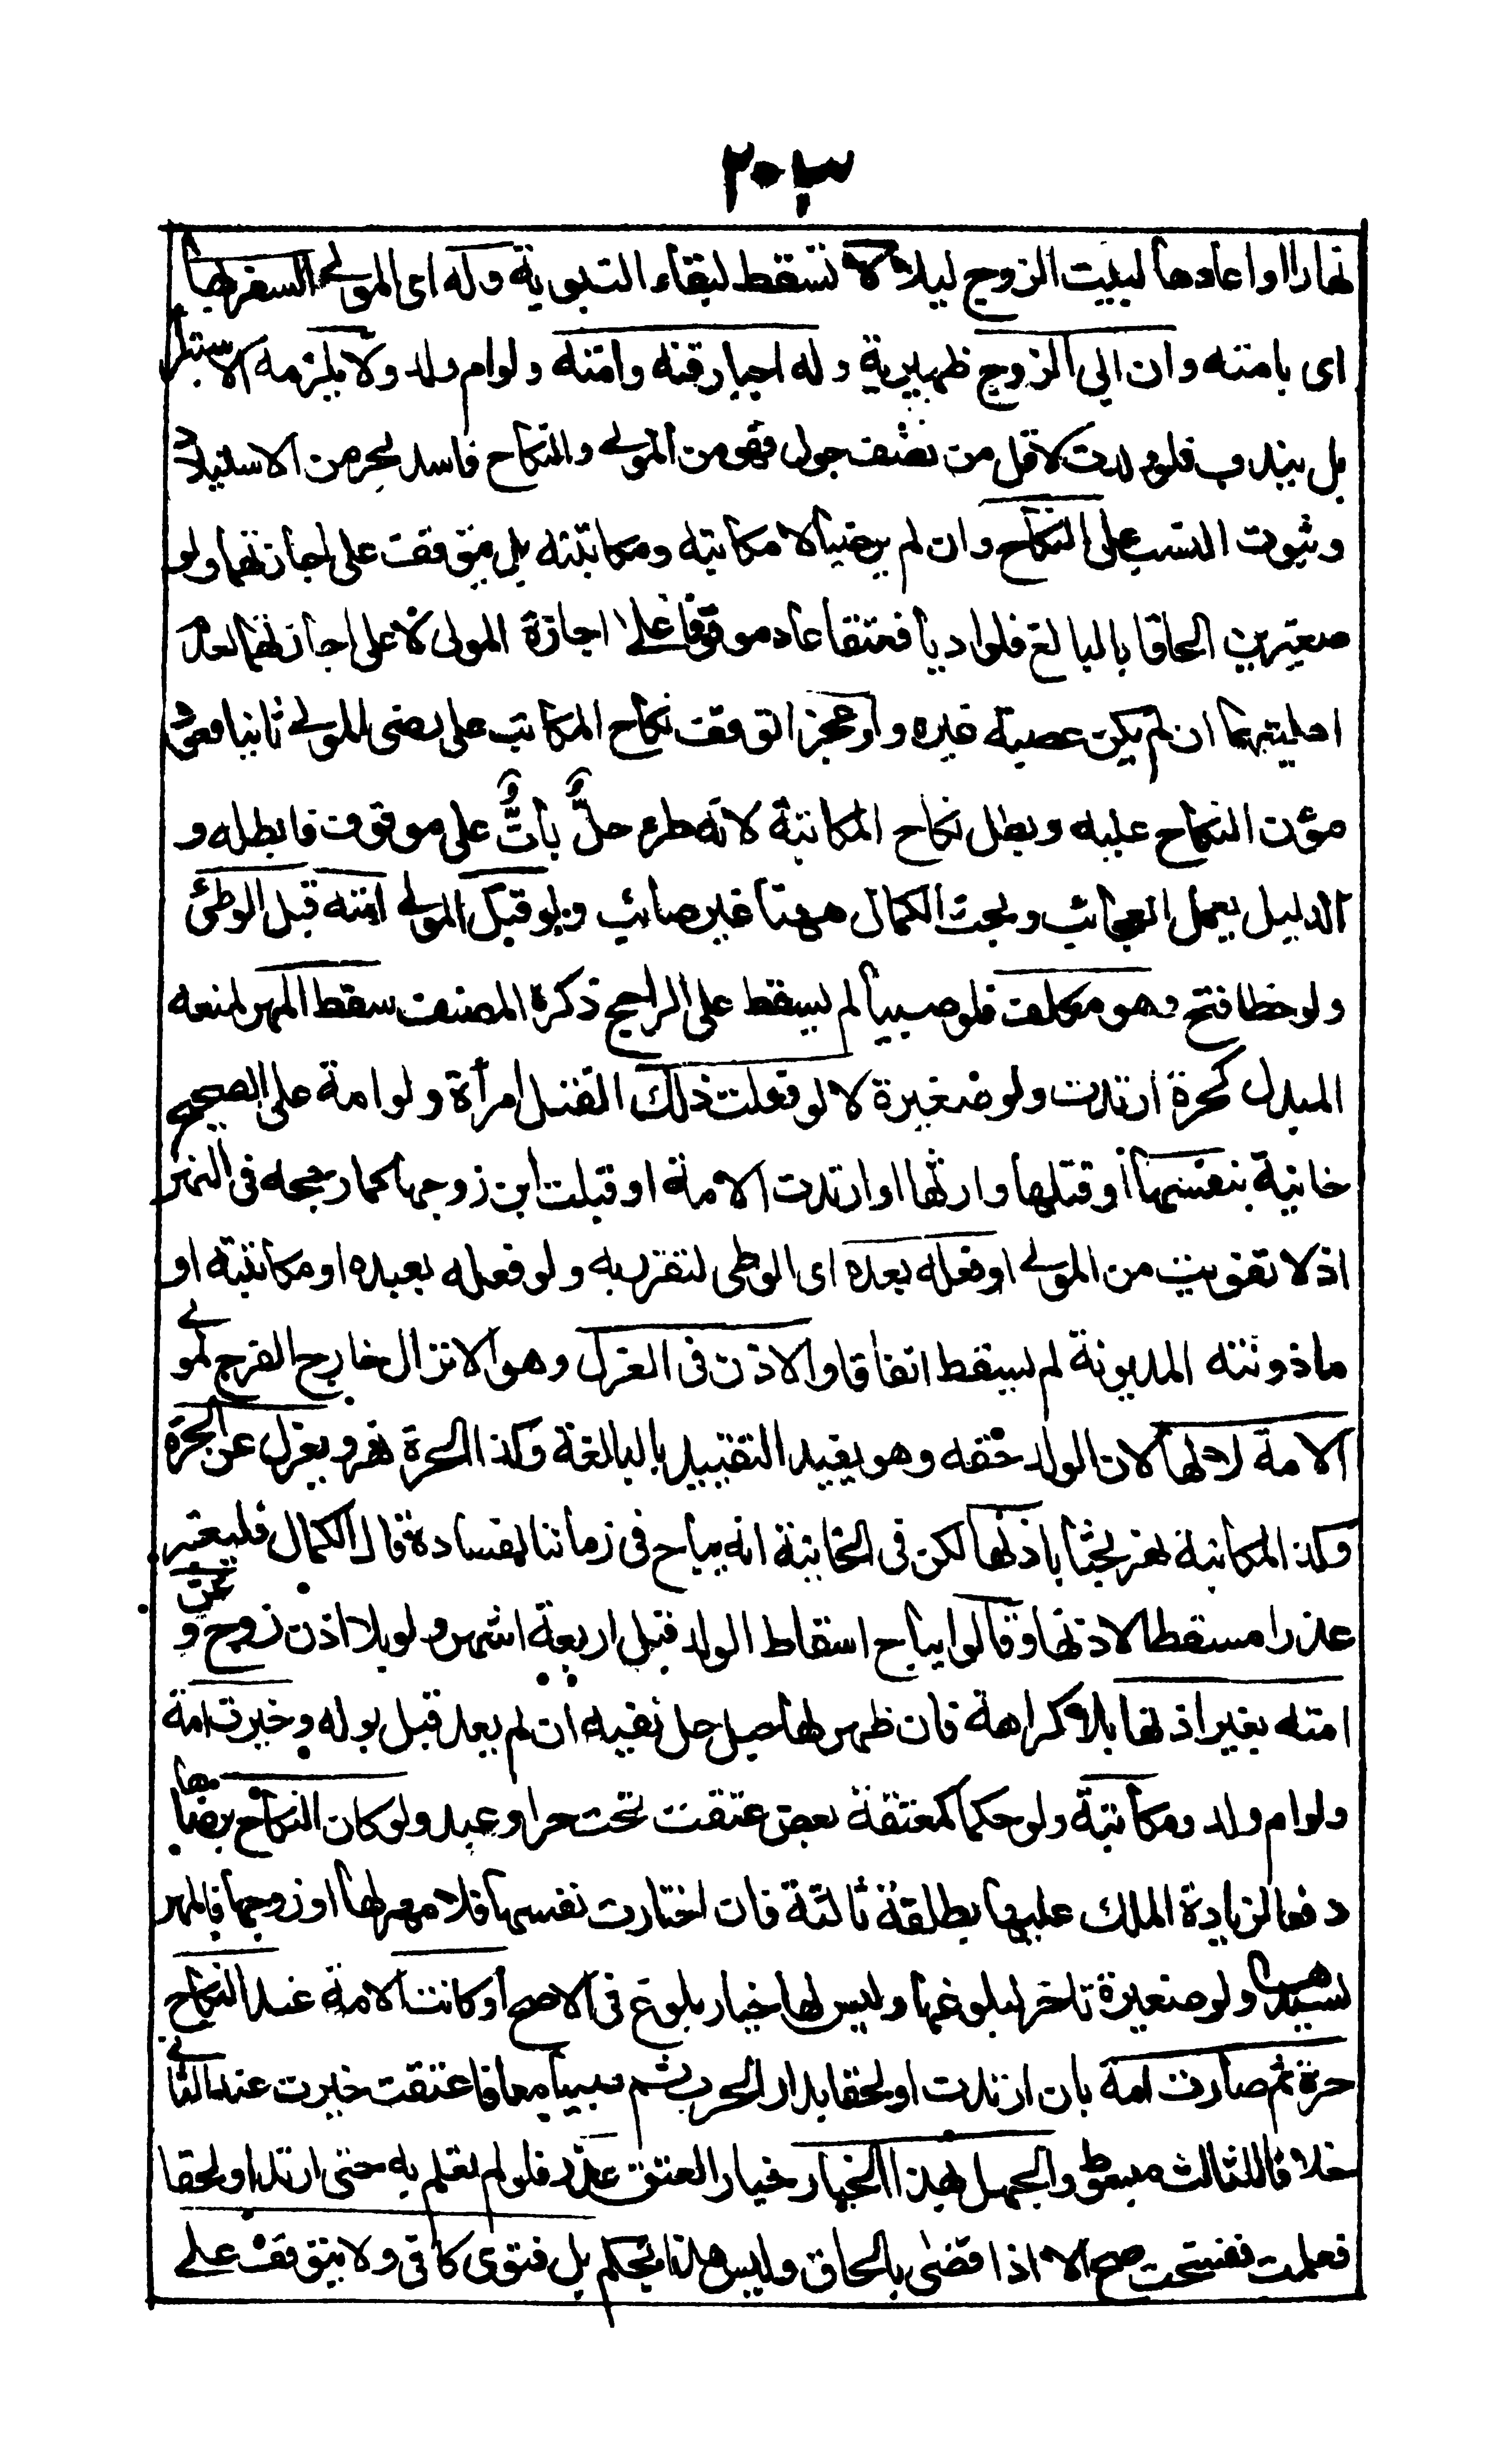 ٢٠٣
نهارا او اعادها لبيت الزوج ليلا لا تسقط لبقاء التبوية وله اى المولى السفر بها
اى بامته وان ابى الزوج ظهيرية وله اجبار قنه وامته ولو ام ولد ولا يلزمه الاستبرا
بل يندب فلو ولدت لاقل من نصف حول فهو من المولى والنكاح فاسد بحر من الاستيلاد
وثبوت النسب على النكاح وان لم يرضيا لا مكاتبه ومكاتبته بل يتوقف على اجازتهما ولو
صغيرين الحاقا بالبالغ فلو اديا فعتقا عاد موقوفا على اجازة المولى لا على اجازتهما لعدم
اهليتهما ان لم يكن عصبة غيره ولو عجزا توقف نكاح المكاتب على رضى المولى ثانيا لعود
مؤن النكاح عليه وبطل نكاح المكاتبة لانه طرء حلٌّ باتٌّ على موقوف فابطله و
الدليل يعمل العجائب وبحث الكمال ههنا غير صائب ولو قتل المولى امته قبل الوطئ
ولو خطا فتح وهو مكلف فلو صبيا لم يسقط على الراجح ذكره المصنف سقط المهر لمنعه
المبدل كحرة ارتدت ولو صغيرة لا لو فعلت ذلك القتل امرأة ولو امة على الصحيح
خانية بنفسها او قتلها وارثها او ارتدت الامة او قبلت ابن زوجها كما رجحه فى النهر
اذ لا تفويت من المولى او فعله بعده اى الوطى لتقرره به ولو فعله بعبده او مكاتبته او
ماذونته المديونة لم يسقط اتفاقا والاذن فى العزل وهو الانزال خارج الفرج لمولى
الامة لا لها لان الولد حقه وهو يفيد التقييد بالبالغة وكذا الحرة نهر ويعزل عن الحرة
وكذا المكاتبة نهر بحثا باذنها لكن فى الخانية انه يباح فى زماننا لفساده قال الكمال فليعتبر
عذرا مسقطا لاذنها وقالوا يباح اسقاط الولد قبل اربعة اشهر ولو بلا اذن زوج و عن
امته بغير اذنها بلا كراهة فان ظهر بها حبل حل نفيه ان لم يعد قبل بوله وخيرت امة
ولو ام ولد ومكاتبة ولو حكما كمعتقة بعض عتقت تحت حر او عبد ولو كان النكاح برضاها
دفعا لزيادة الملك عليها بطلقة ثالثة فان اختارت نفسها فلا مهر لها او زوجها فالمهر
لسيدها ولو صغيرة تاخر لبلوغها وليس لها خيار بلوغ فى الاصح او كانت الامة عند النكاح
حرة ثم صارت امة بان ارتدت او لحقا بدار الحرب ثم سبيا معا فاعتقت خيرت عند الثانى
خلافا للثالث مبسوط والجهل بهذا الخيار خيار العتق عذر فلو لم تعلم به حتى ارتدا ولحقا
فعلمت ففسخت صح الا اذا قضى بالحاق وليس هذا بحكم بل فتوى كافى ولا يتوقف على